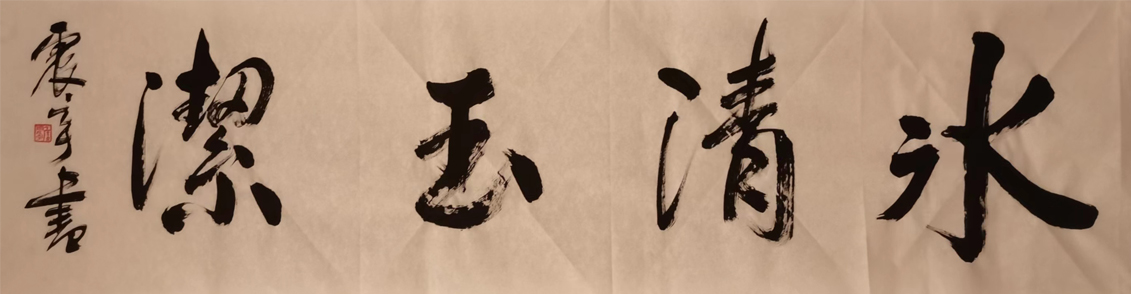 冰清玉潔
震宇書